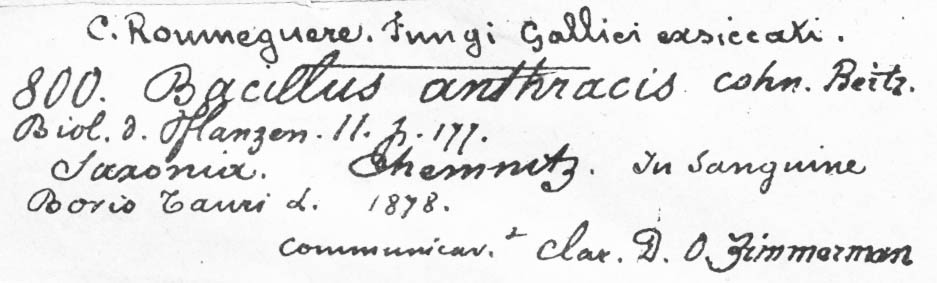 C. Roumeguere. Fungi Gallici exsiccati.
800. Bacillus anthracis Cohn. Beitr.
Biol. d. Pflanzen. II. p. 177.
Saxonia. Chemnitz. In Sanguine
Bovis Tauri d. 1878.
communicav.^t Clar. D. O. Zimmerman